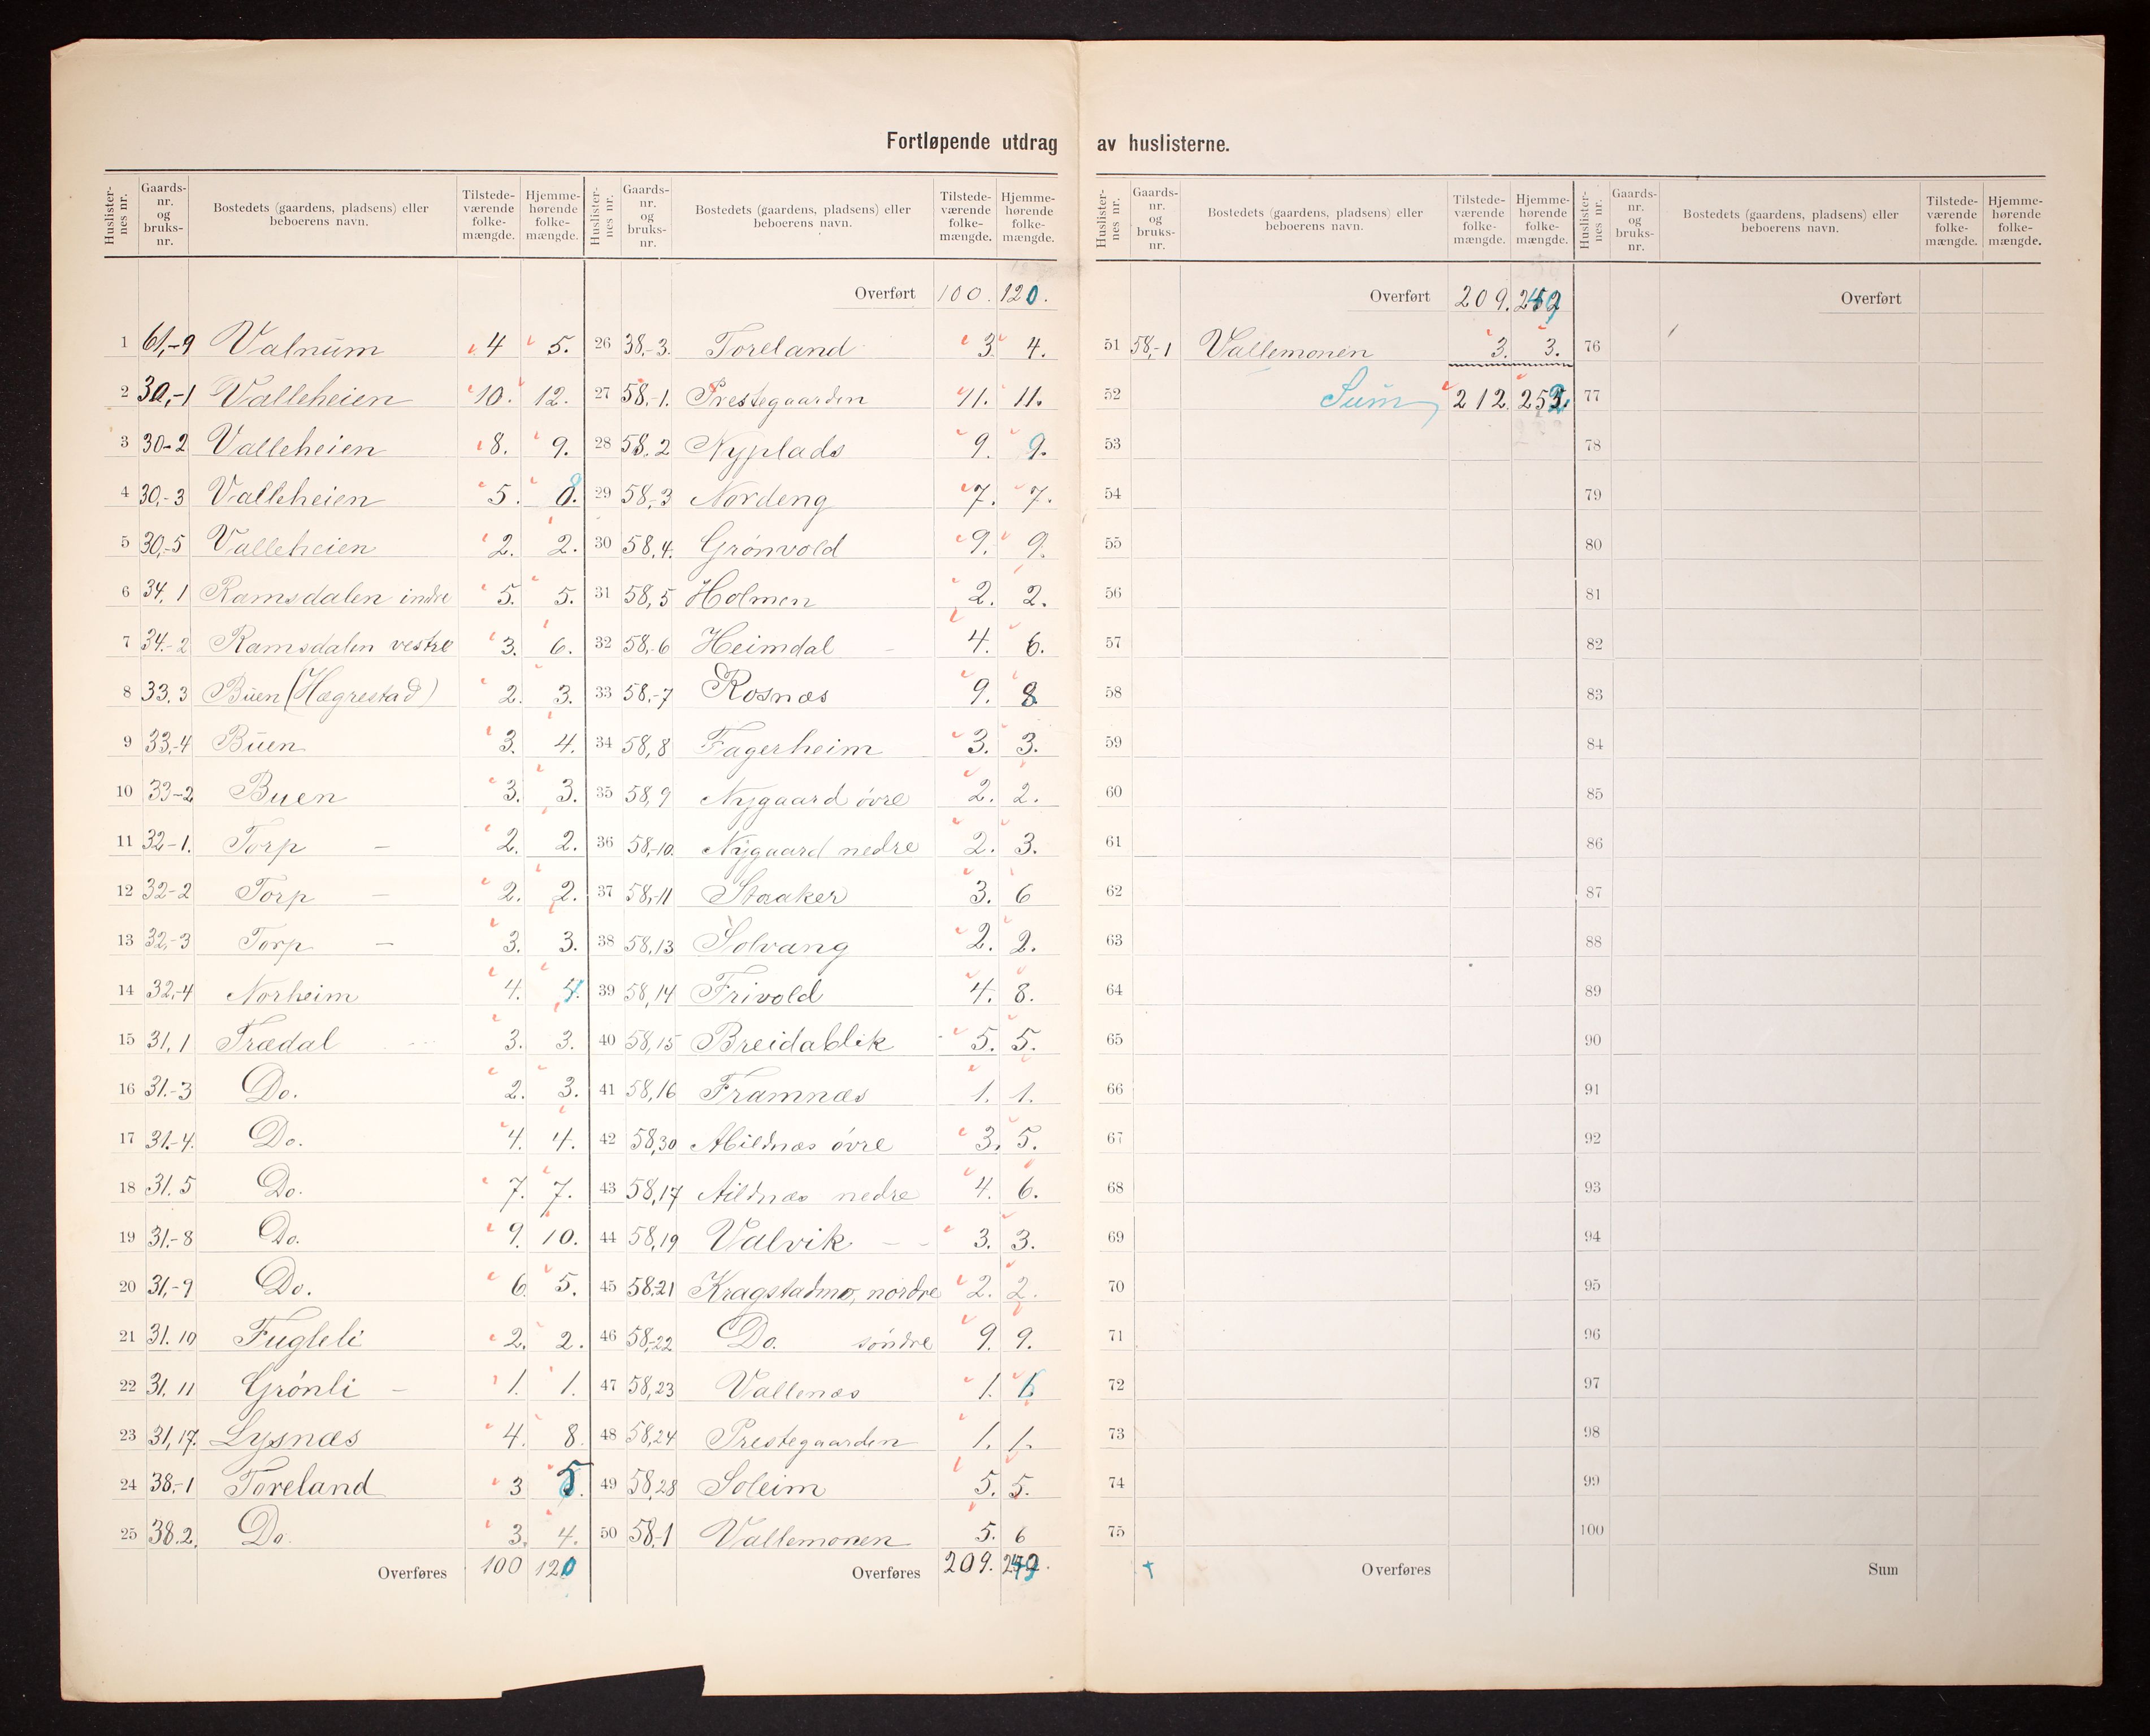 Fortløpende utdrag av huslisterne.
Huslister- nes nr. Gaards- nr. og bruks- nr. Bostedets (gaardens, pladsens) eller beboerens navn. Tilstede- værende folke- mængde. Hjemme- hørende folke- mængde.
1 61,-9 Valnum 4 5.
2 30,-1 Valleheien 10. 12.
3 30-2 Valleheien 8. 9.
4 30,-3 Valleheien 5. 8.
5 30,-5 Valleheien 2. 2.
6 34,1 Ramsdalen indre 5. 5.
7 34.-2 Ramsdalen vestre 3. 6.
8 33.3 Buen (Hægrestad) 2. 3.
9 33,-4 Buen 3. 4.
10 33-2 Buen 3. 3.
11 32-1. Torp – 2. 2.
12 32-2 Torp – 2. 2.
13 32,-3 Torp – 3. 3.
14 32,-4 Norheim 4. 4.
15 31,1 Trædal 3. 3.
16 31.-3 Do. 2. 3.
17 31.-4. Do. 4. 4.
18 31.5 Do. 7. 7.
19 31.-8 Do. 9. 10.
20 31,-9 Do. 6 5.
21 31.10 Fugleli 2. 2.
22 31.11 Grønli – 1. 1.
23 31,17. Lysnæs 4. 8.
24 38,-1 Toreland 3 5.
25 38.2. Do. 3. 4.
Overføres 100 120
Huslister- nes nr. Gaards- nr. og bruks- nr. Bostedets (gaardens, pladsens) eller beboerens navn. Tilstede- værende folke- mængde. Hjemme- hørende folke- mængde.
Overført 100. 120.
26 38,-3. Toreland 3. 4.
27 58,-1. Prestegaarden 11. 11.
28 58.2 Nyplads 9. 9.
29 58,-3 Nordeng 7. 7.
30 58,4. Grønvold 9. 9.
31 58,5 Holmen 2. 2.
32 58,-6 Heimdal – 4. 6.
33 58,-7 Rosnæs 9. 8
34 58,8 Fagerheim 3. 3.
35 58,9 Nygaard øvre 2. 2.
36 58,-10. Nygaard nedre 2. 3.
37 58,-11 Staaker 3. 6
38 58,13 Solvang 2. 2.
39 58,14 Frivold 4. 8.
40 58,15 Breidablik 5. 5.
41 58,16 Framnæs 1. 1.
42 58,30 Abildnæs øvre 3. 5.
43 58,17 Aildnæs nedre 4. 6.
44 58,19 Valvik – – 3. 3.
45 58,21 Kragstadmo, nordre 2. 2.
46 58,-22 Do. søndre 9. 9.
47 58,23 Vallenæs 1.
48 58,24 Prestegaarden 1. 1.
49 58,28 Soleim 5. 5.
50 58,-1 Vallemonen 5. 6
Overføres 209. 249.
Huslister- nes nr. Gaards- nr. og bruks- nr. Bostedets (gaardens, pladsens) eller beboerens navn. Tilstede- værende folke- mængde. Hjemme- hørende folke- mængde.
Overført 209. 249
51 58,-1 Vallemonen 3. 3.
52 Sum 212 252.
53
54
55
56
57
58
59
60
61
62
63
64
65
66
67
68
69
70
71
72
73
74
75
Overføres
Huslister- nes nr. Gaards- nr. og bruks- nr. Bostedets (gaardens, pladsens) eller beboerens navn. Tilstede- værende folke- mængde. Hjemme- hørende folke- mængde.
Overført
76
77
78
79
80
81
82
83
84
85
86
87
88
89
90
91
92
93
94
95
96
97
98
99
100
Sum